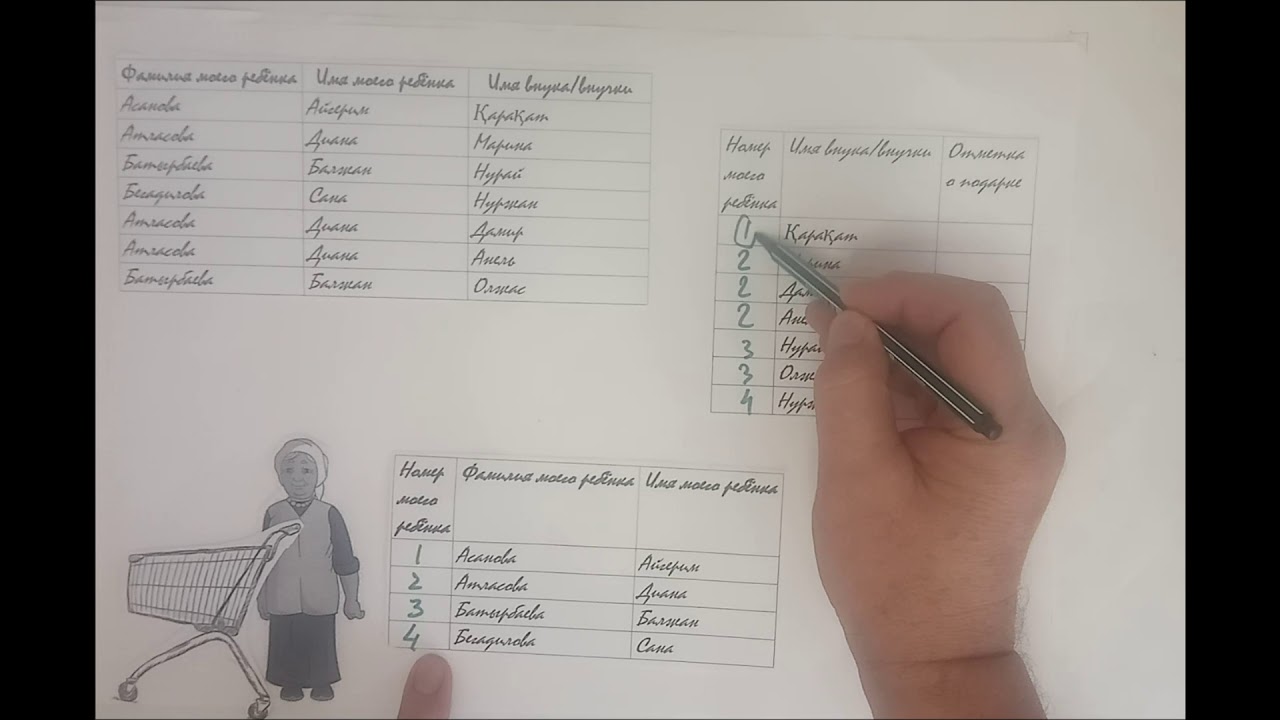 Фамилия моего ребёнка Имя моего ребёнка Имя внука/внучки
Асанова Айгерим Қарақат
Атласова Диана Марина
Батырбаева Балжан Нурай
Бегадилова Сана Нуржан
Атласова Диана Дамир
Атласова Диана Анель
Батырбаева Балжан Олжас
Номер моего ребёнка Имя внука/внучки Отметка о подарке
1 Қарақат
2
2
2
3
3
4
Номер моего ребёнка Фамилия моего ребёнка Имя моего ребёнка
1 Асанова Айгерим
2 Атласова Диана
3 Батырбаева Балжан
4 Бегадилова Сана